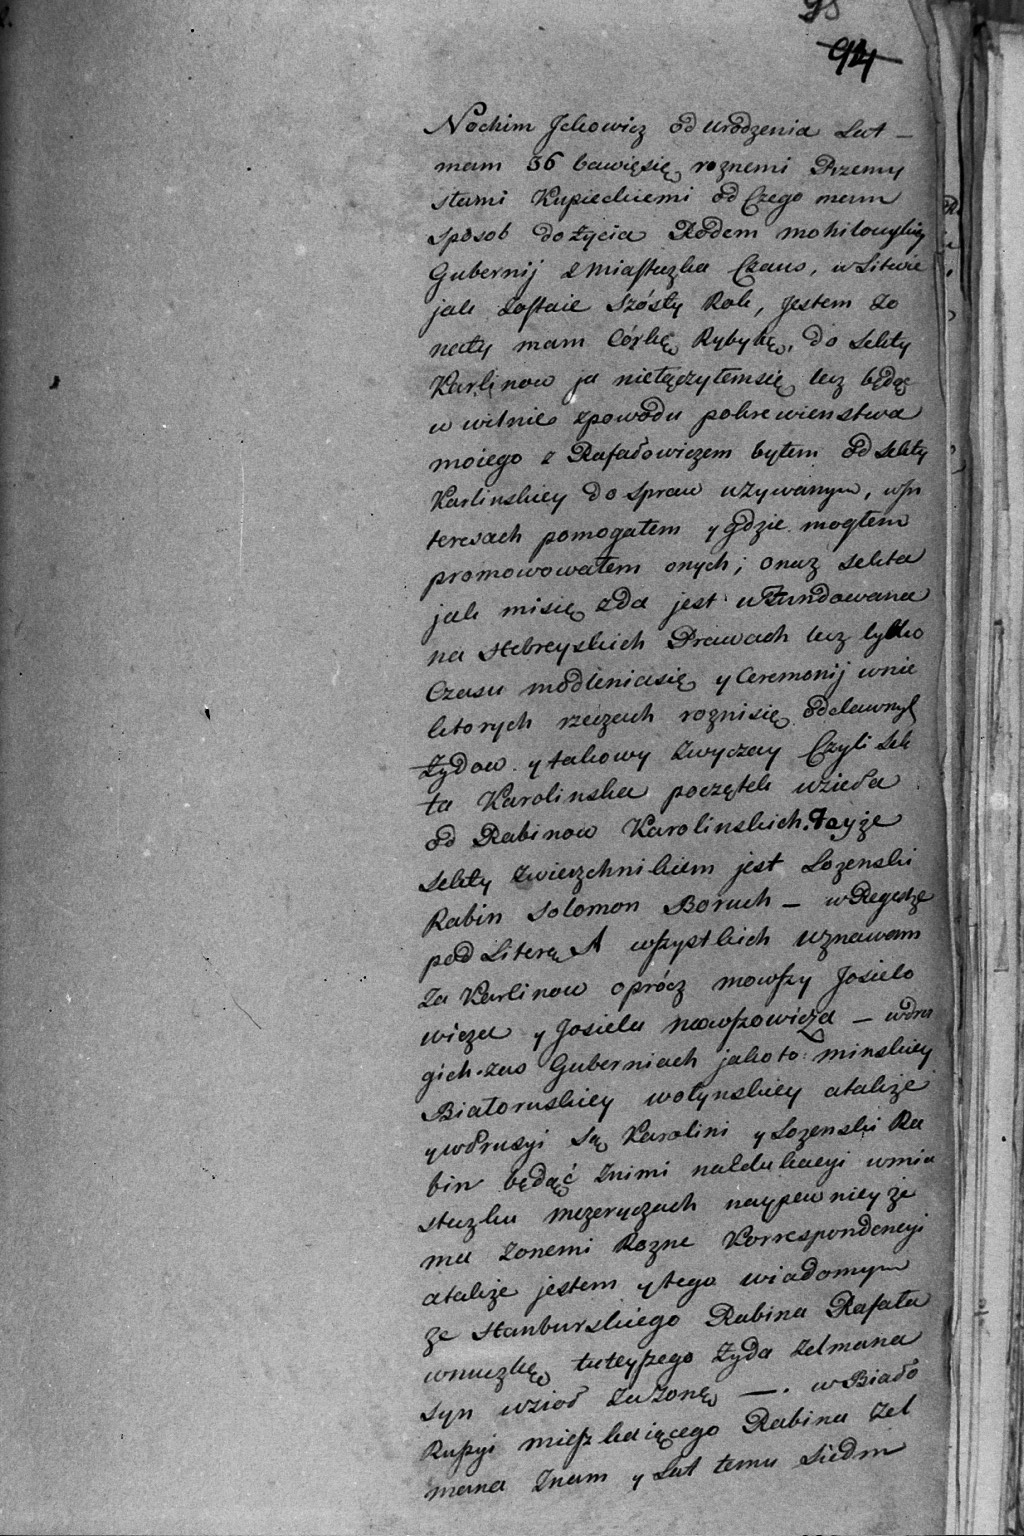 95
94
Nochim Jckowicz od urodzenia Lat –
mam 36 bawięsię roznemi Przemy
słami Kupieckiemi od Czego mam
sposob do życia Rodem mohilowskiey
Gubernij z Miasteczka Czaus, w Litwie
jak zostaie szósty Rok, jestem żo
naty mam Córkę Rybykę, do sekty
Karlinow ja nie łączyłemsię lecz będąc
w wilnie z powodu pokrewienstwa
moiego z Rafałowiczem byłem od sekty
Karlinskiey do spraw używanym, w In
teresach pomogałem y gdzie mogłem
promowowałem onych; onaz sekta
jak misię zda jest ufundowana
na Hebreyskich Prawach lecz tylko
Czasu modleniasię y Ceremonij w nie
ktorych rzeczach roznisię od dawnych
Żydow y takowy zwyczay Czyli sek
ta Karolinska początek wzieła
od Rabinow Karolinskich. Teyże
sekty zwierzchnikiem jest Lozenski
Rabin Solomon Boruch – w Regestze
pod Literą A wszystkich uznawam
za Karlinow oprócz mowszy Josielo
wicza y Josiela mowszowicza – w dru
gich zas Guberniach jako to: minskiey
Białoruskiey wołynskiey a także
y w Prusyi są Karolini y Lozenski Ra
bin będąć z nimi na Edukacyi w mia
steczku mezeryczach naypewniey że
ma z onemi Rozne Korrespondencyi
a także jestem y tego wiadomym
że Hanburskiego Rabina Rafała
wnuczkę tuteyszego Żyda Zelmana
syn wzioł za żonę —. w Biało
Russyi mieszkaiącego Rabina Zel
mana znam y Lat temu siedm